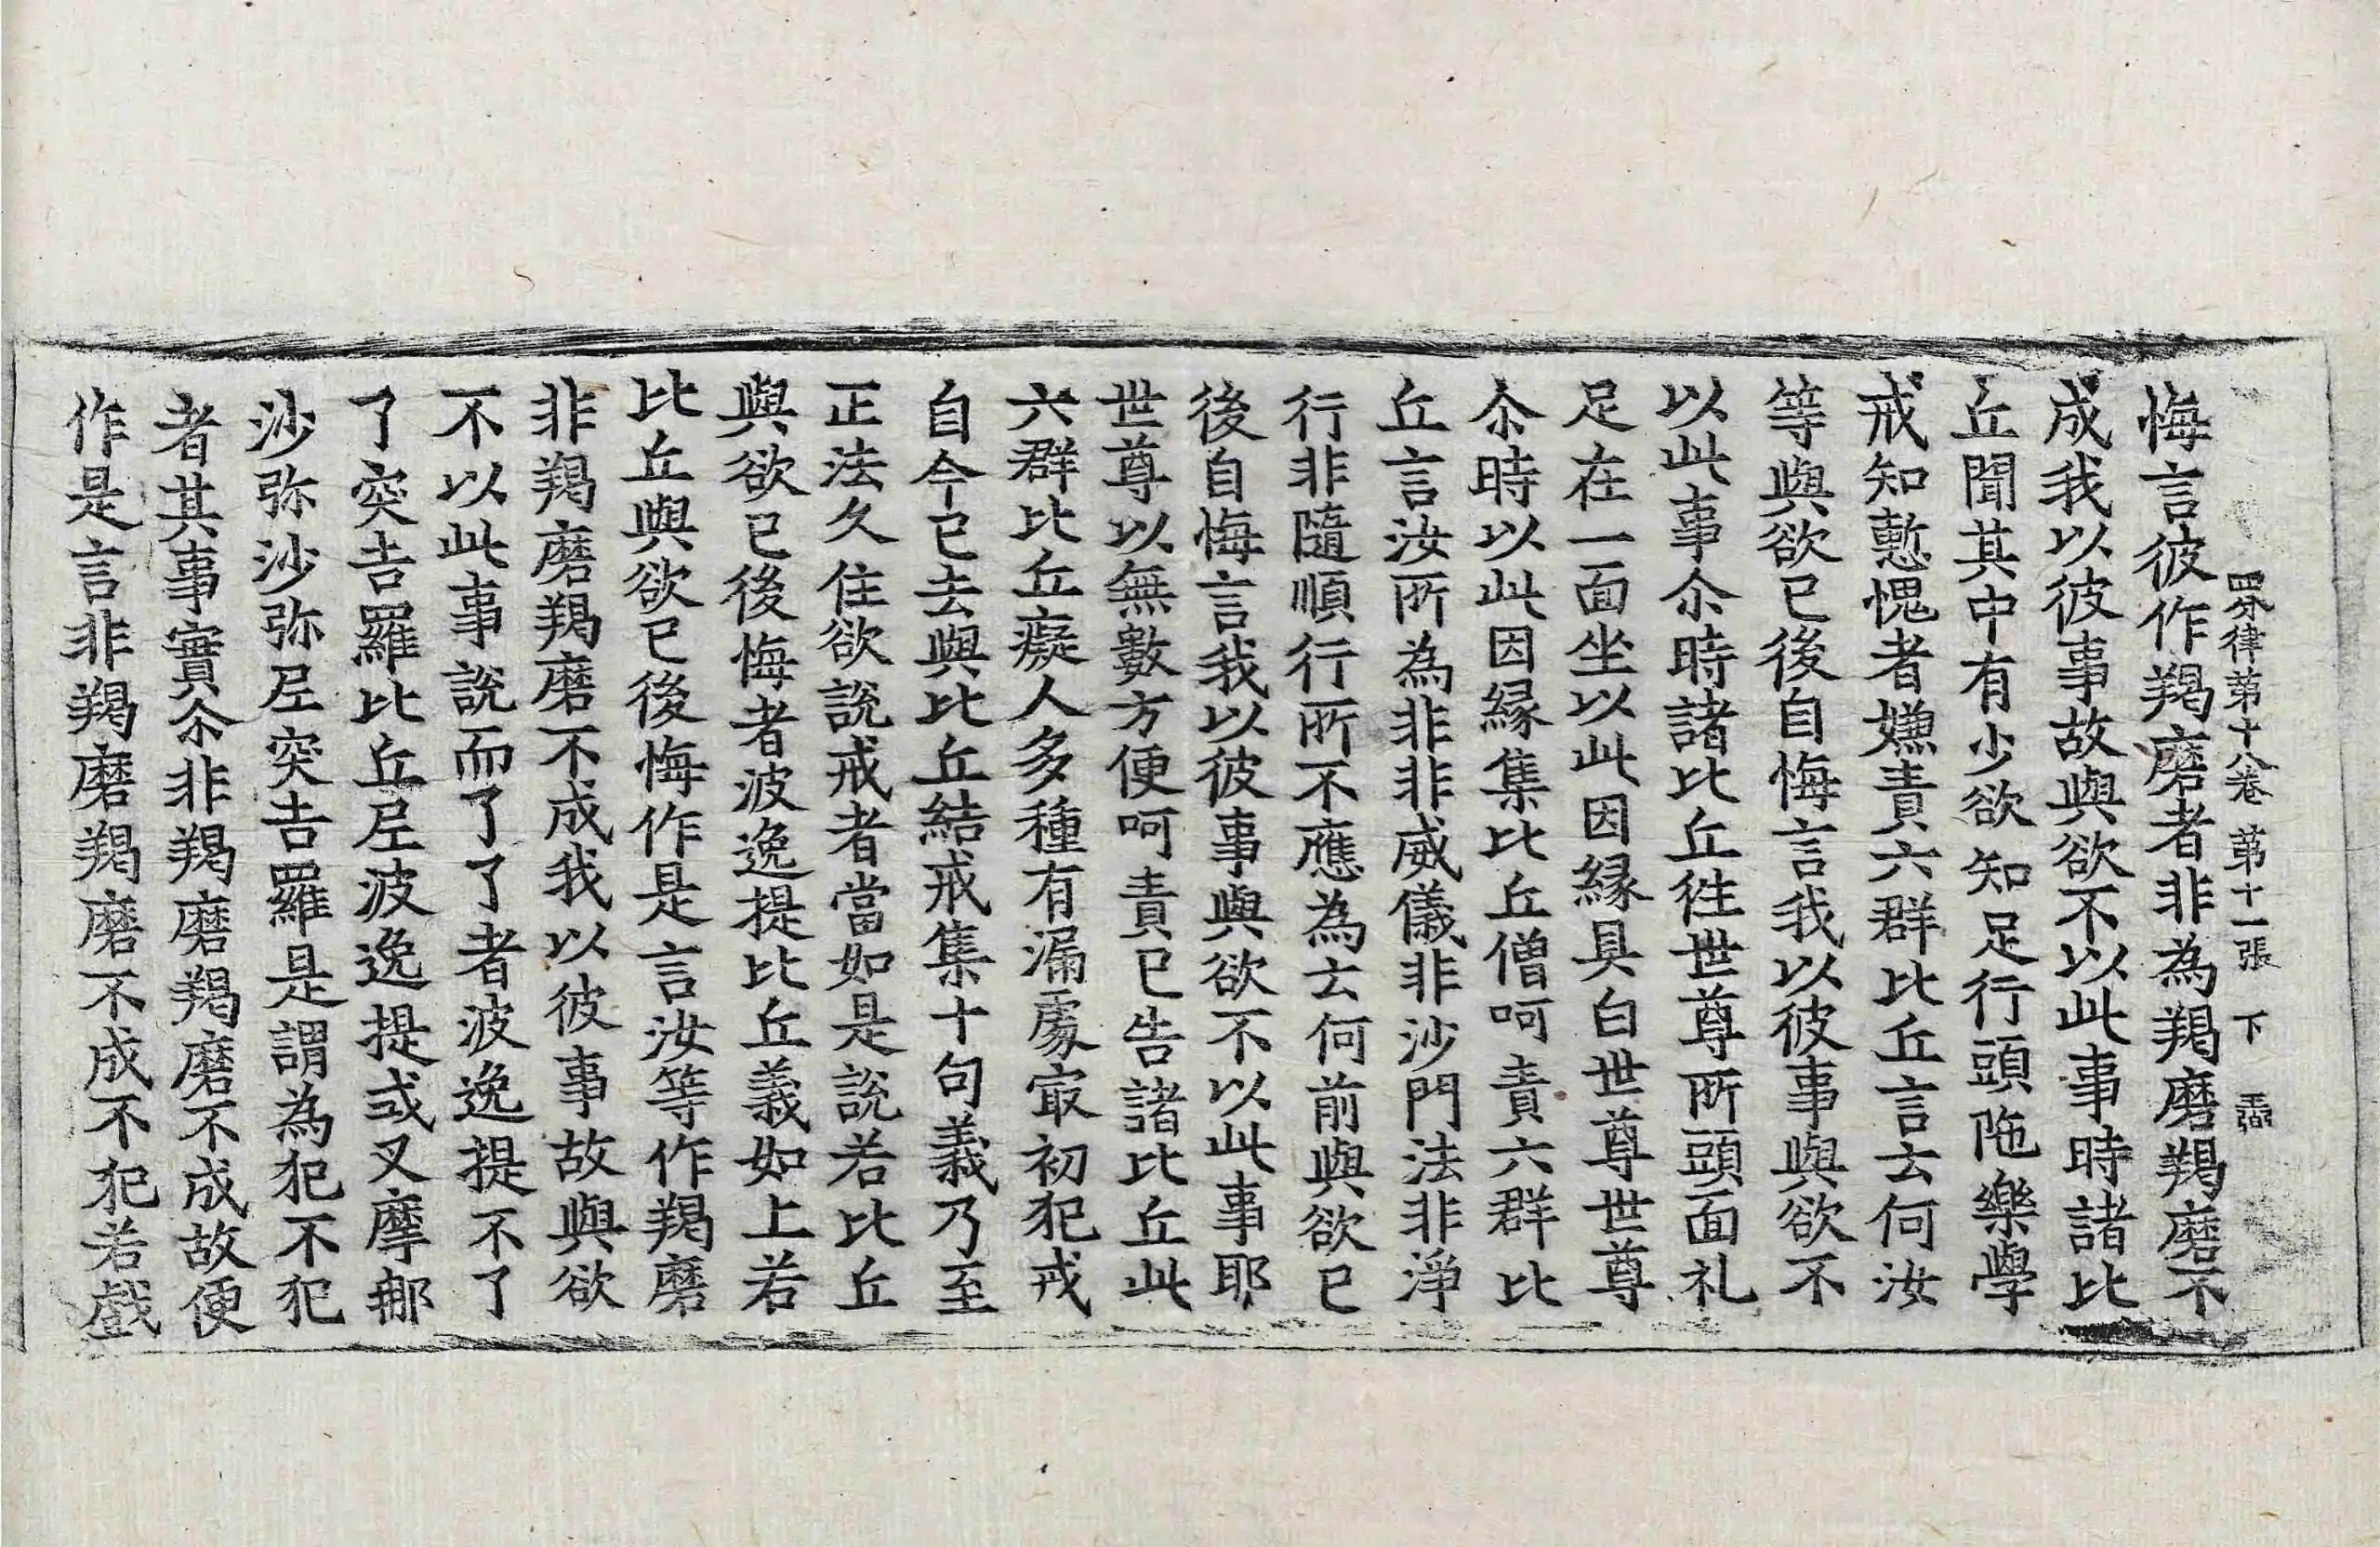 四分律第十八卷 第十一張 下
悔言彼作羯磨者非為羯磨羯磨不
成我以彼事故與欲不以此事時諸比
丘聞其中有少欲知足行頭陁樂學
戒知慙愧者嫌責六群比丘言云何汝
等與欲已後自悔言我以彼事與欲不
以此事尒時諸比丘徃世尊所頭面礼
足在一面坐以此因縁具白世尊世尊
尒時以此因縁集比丘僧呵責六群比
丘言汝所為非非威儀非沙門法非淨
行非隨順行所不應為云何前與欲已
後自悔言我以彼事與欲不以此事耶
世尊以無數方便呵責已告諸比丘此
六群比丘癡人多種有漏處㝡初犯戒
自今已去與比丘結戒集十句義乃至
正法久住欲說戒者當如是說若比丘
與欲已後悔者波逸提比丘義如上若
比丘與欲已後悔作是言汝等作羯磨
非羯磨羯磨不成我以彼事故與欲
不以此事說而了了者波逸提不了
了突吉羅比丘尼波逸提式叉摩那
沙弥沙弥尼突吉羅是謂為犯不犯
者其事實尒非羯磨羯磨不成故便
作是言非羯磨羯磨不成不犯若戲